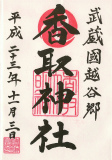 武蔵國越谷郷
香取神社
平成二十三年十一月二日